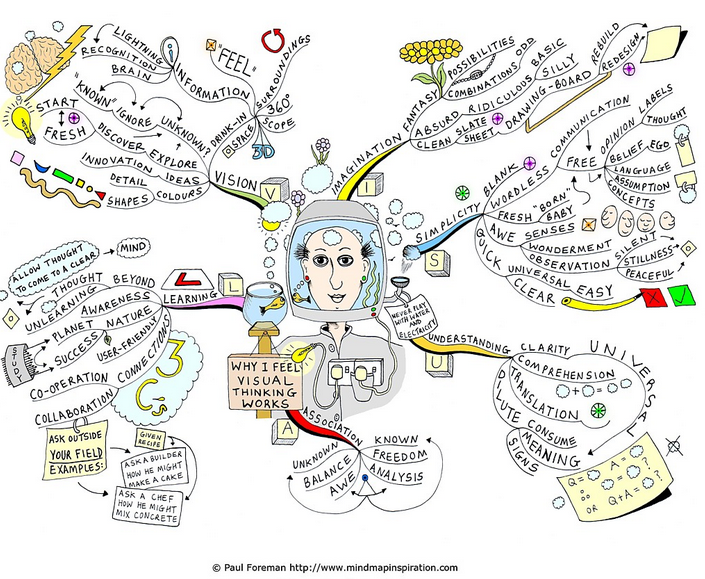 LIGHTNING
RECOGNITION
BRAIN
INFORMATION
"FEEL"
SURROUNDINGS
360°
SCOPE
DRINK-IN
SPACE
3D
"KNOWN" IGNORE
UNKNOWN?
START
FRESH
DISCOVER EXPLORE
INNOVATION IDEAS
DETAIL
SHAPES COLOURS
VISION
V
IMAGINATION
I
FANTASY
POSSIBILITIES
COMBINATIONS ODD
ABSURD RIDICULOUS SILLY
BASIC
CLEAN SLATE
SHEET
DRAWING-BOARD
REBUILD
REDESIGN
SIMPLICITY
S
BLANK
WORDLESS
COMMUNICATION
FREE
OPINION LABELS
THOUGHT
BELIEF EGO
LANGUAGE
ASSUMPTION
CONCEPTS
FRESH "BORN"
BABY
AWE SENSES
WONDERMENT
OBSERVATION
SILENT
STILLNESS
PEACEFUL
QUICK
UNIVERSAL EASY
CLEAR
ALLOW THOUGHT
TO COME TO A CLEAR
MIND
LEARNING
L
L
THOUGHT BEYOND
UNLEARNING
AWARENESS
PLANET NATURE
SUCCESS
USER-FRIENDLY
STUDY
CO-OPERATION
COLLABORATION
CONNECTIONS
ASK OUTSIDE
YOUR FIELD
EXAMPLES:
GIVEN
RECIPE
ASK A BUILDER
HOW HE MIGHT
MAKE A CAKE
ASK A CHEF
HOW HE MIGHT
MIX CONCRETE
WHY I FEEL
VISUAL
THINKING
WORKS
NEVER PLAY
WITH WATER
AND
ELECTRICITY
ASSOCIATION
A
UNKNOWN
BALANCE
AWE
KNOWN
FREEDOM
ANALYSIS
UNDERSTANDING
U
CLARITY
COMPREHENSION
UNIVERSAL
TRANSLATION
DILUTE CONSUME
MEANING
SIGNS
Q= A=
OR Q+A= ?
© Paul Foreman http://www.mindmapinspiration.com